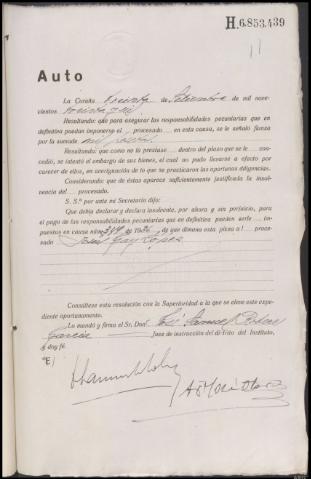 H.6.853.439
11
Auto
La Coruña treinta de Setiembre de mil nove-
cientos treinta y seis
Resultando: que para asegurar las responsabilidades pecuniarias que en
definitiva puedan imponerse al procesado en esta causa, se le señaló fianza
por la suma de mil pesetas
Resultando: que como no la prestase dentro del plazo que se le con-
cedió, se intentó el embargo de sus bienes, el cual no pudo llevarse a efecto por
carecer de ellos, en averiguación de lo que se practicaron las oportunas diligencias.
Considerando: que de éstas aparece suficientemente justificada la insol-
vencia del procesado.
S. S.ª por ante mi Secretario dijo:
Que debía declarar y declara insolvente, por ahora y sin perjuicio, para
el pago de las responsabilidades pecuniarias que en definitiva pueden serle im-
puestas en causa núm. de 1936 de que dimana esta pieza al pro-
cesado José López
Consúltese esta resolución con la Superioridad a la que se eleve este expe-
diente oportunamente.
Lo mandó y firma el Sr. Don José
García Juez de instrucción del distrito del Instituto,
y doy fé.